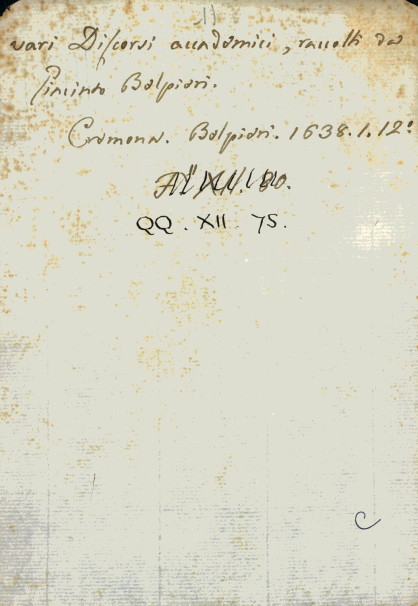 11
vari Discorsi accademici, raccolti da
Giacinto Belpieri.
Cremona. Belpieri. 1638. 1. 12º
QQ. XII 75.
C